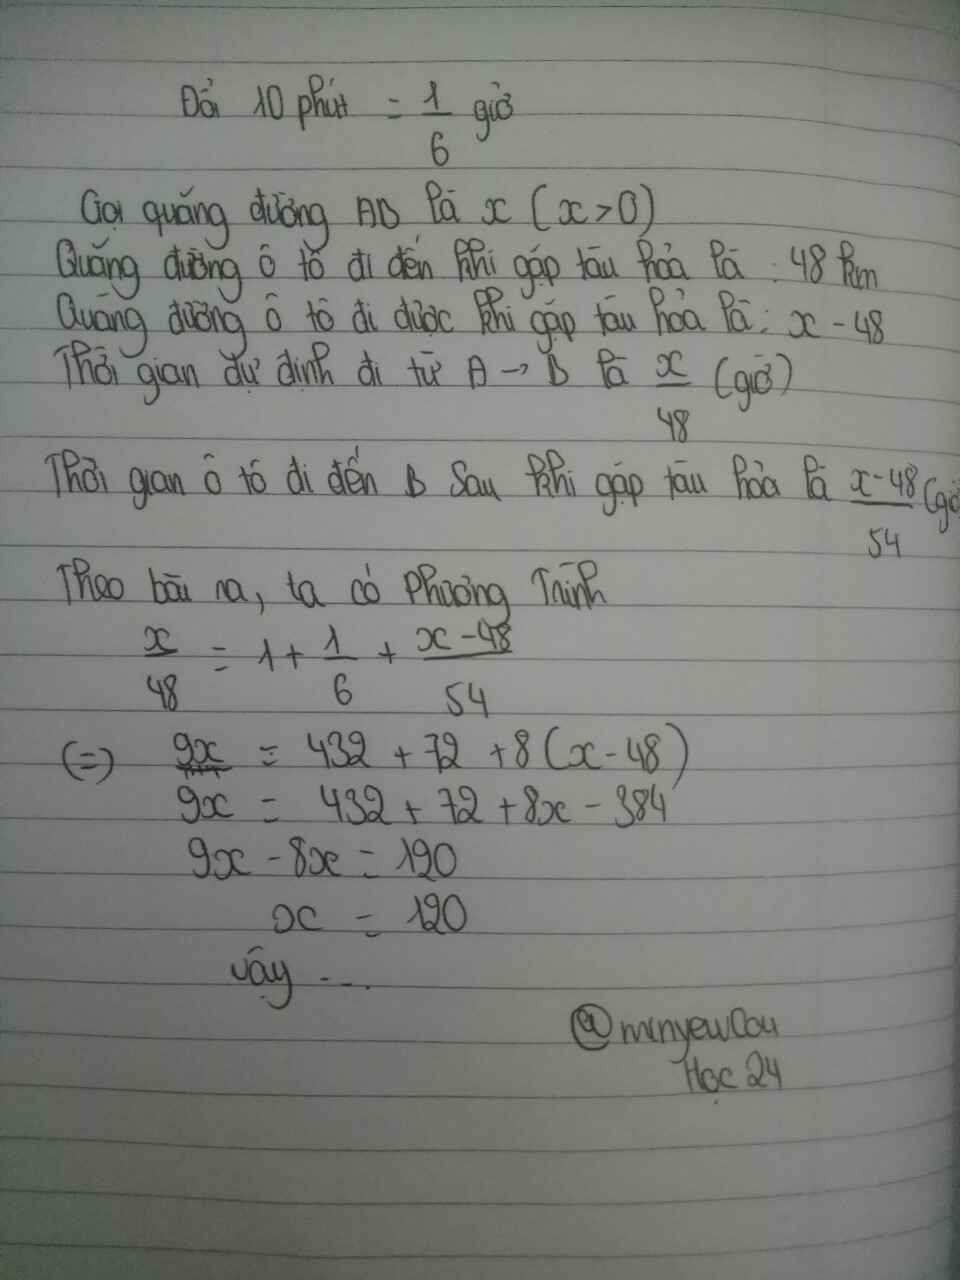 Đổi 10 phút = 1/6 giờ
Gọi quãng đường AB là x (x>0)
Quãng đường ô tô đi đến khi gặp tàu hỏa là : 48 km
Quãng đường ô tô đi được khi gặp tàu hỏa là: x - 48
Thời gian dự định đi từ A → B là x/48 (giờ)
Thời gian ô tô đi đến B sau khi gặp tàu hỏa là x-48/54 (giờ
Theo bài ra, ta có phương trình
x/48 = 1 + 1/6 + x-48/54
(=) 9x = 432 + 72 + 8(x-48)
9x = 432 + 72 + 8x - 384
9x - 8x = 120
x = 120
Vậy ...
@minyewCou
Học 24